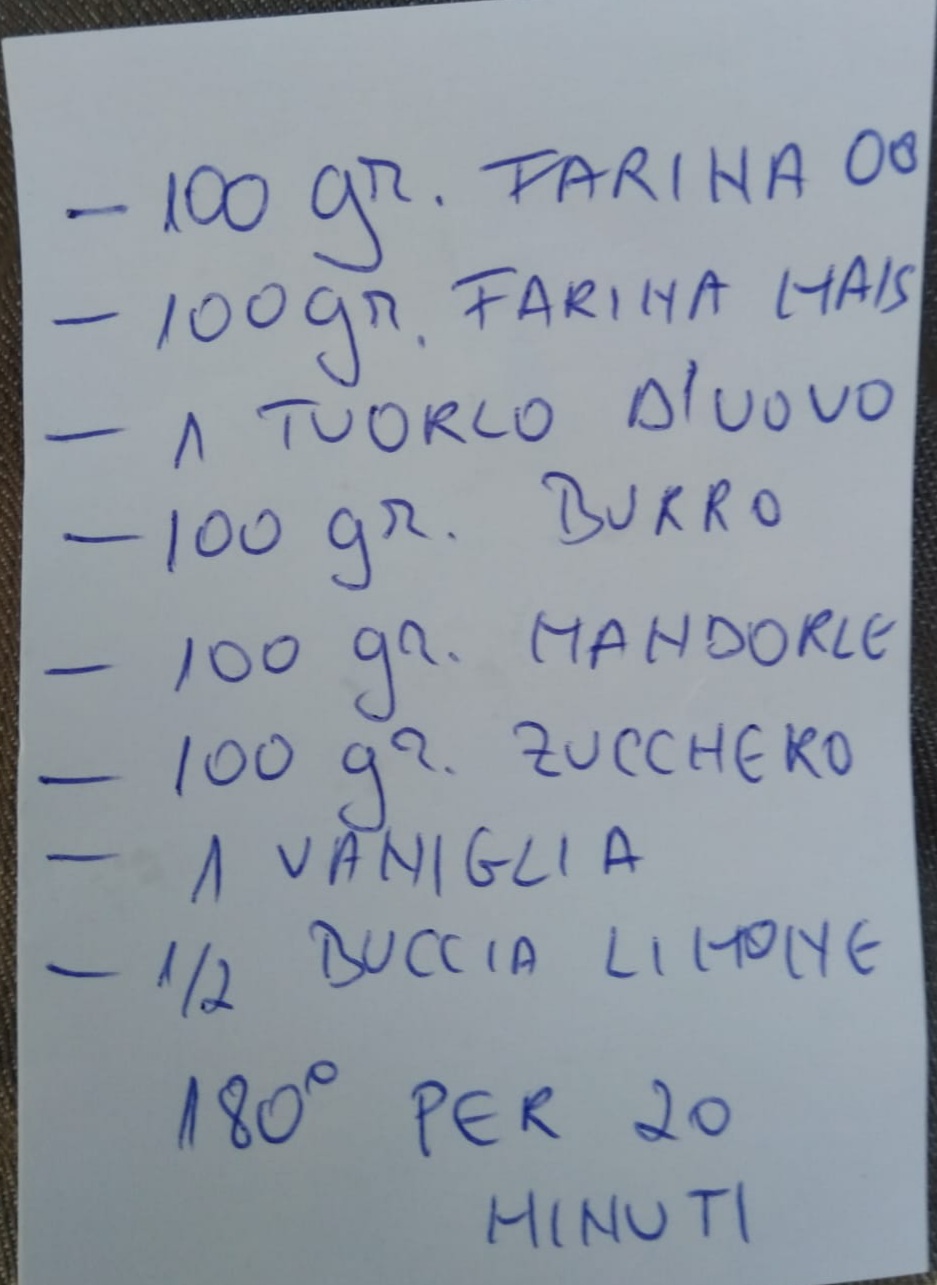 - 100 gr. FARINA 00
- 100 gr. FARINA MAIS
- 1 TUORLO D'UOVO
- 100 gr. BURRO
- 100 gr. MANDORLE
- 100 gr. ZUCCHERO
- 1 VANIGLIA
- 1/2 BUCCIA LIMONE
180° PER 20
MINUTI